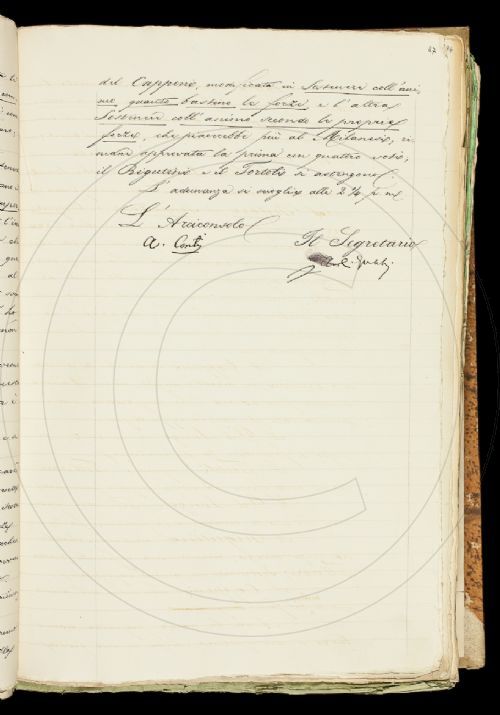 47
del Capponi, modificata in Sostener coll'ani,
mo quanto bastino le forze, e l'altra
Sostenir coll'animo secondo le proprie
forze, che piacerebbe più al Milanesi, ri-
mane approvata la prima con quattro voti;
il Rigutini e il Tortoli si astengono.
L'adunanza si scioglie alle 2 ¼ p. m.
L'Arciconsolo
Il Segretario
A. Conti